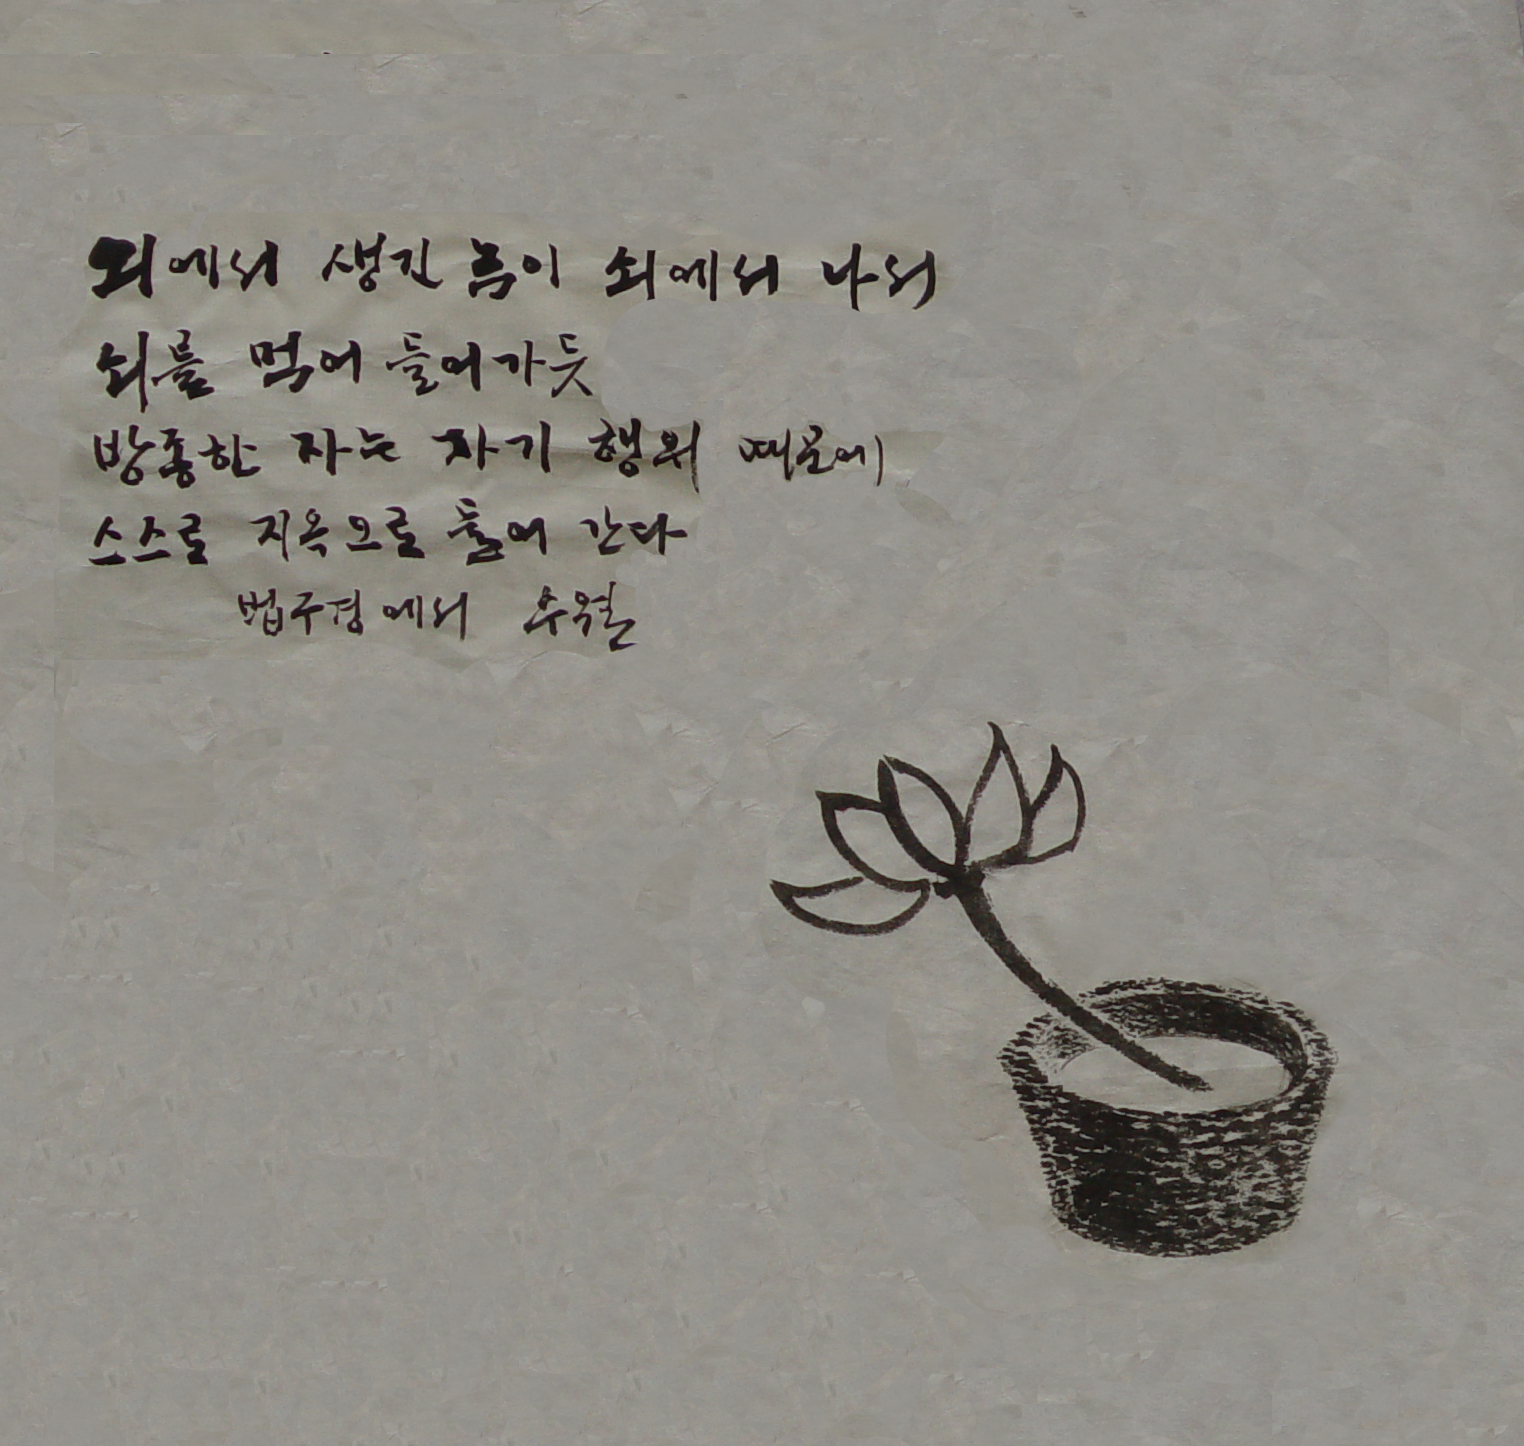 쇠에서 생긴 녹이 쇠에서 나서
쇠를 먹어 들어가듯
방종한 자는 자기 행위 때문에
스스로 지옥으로 들어 간다
법구경에서 수월